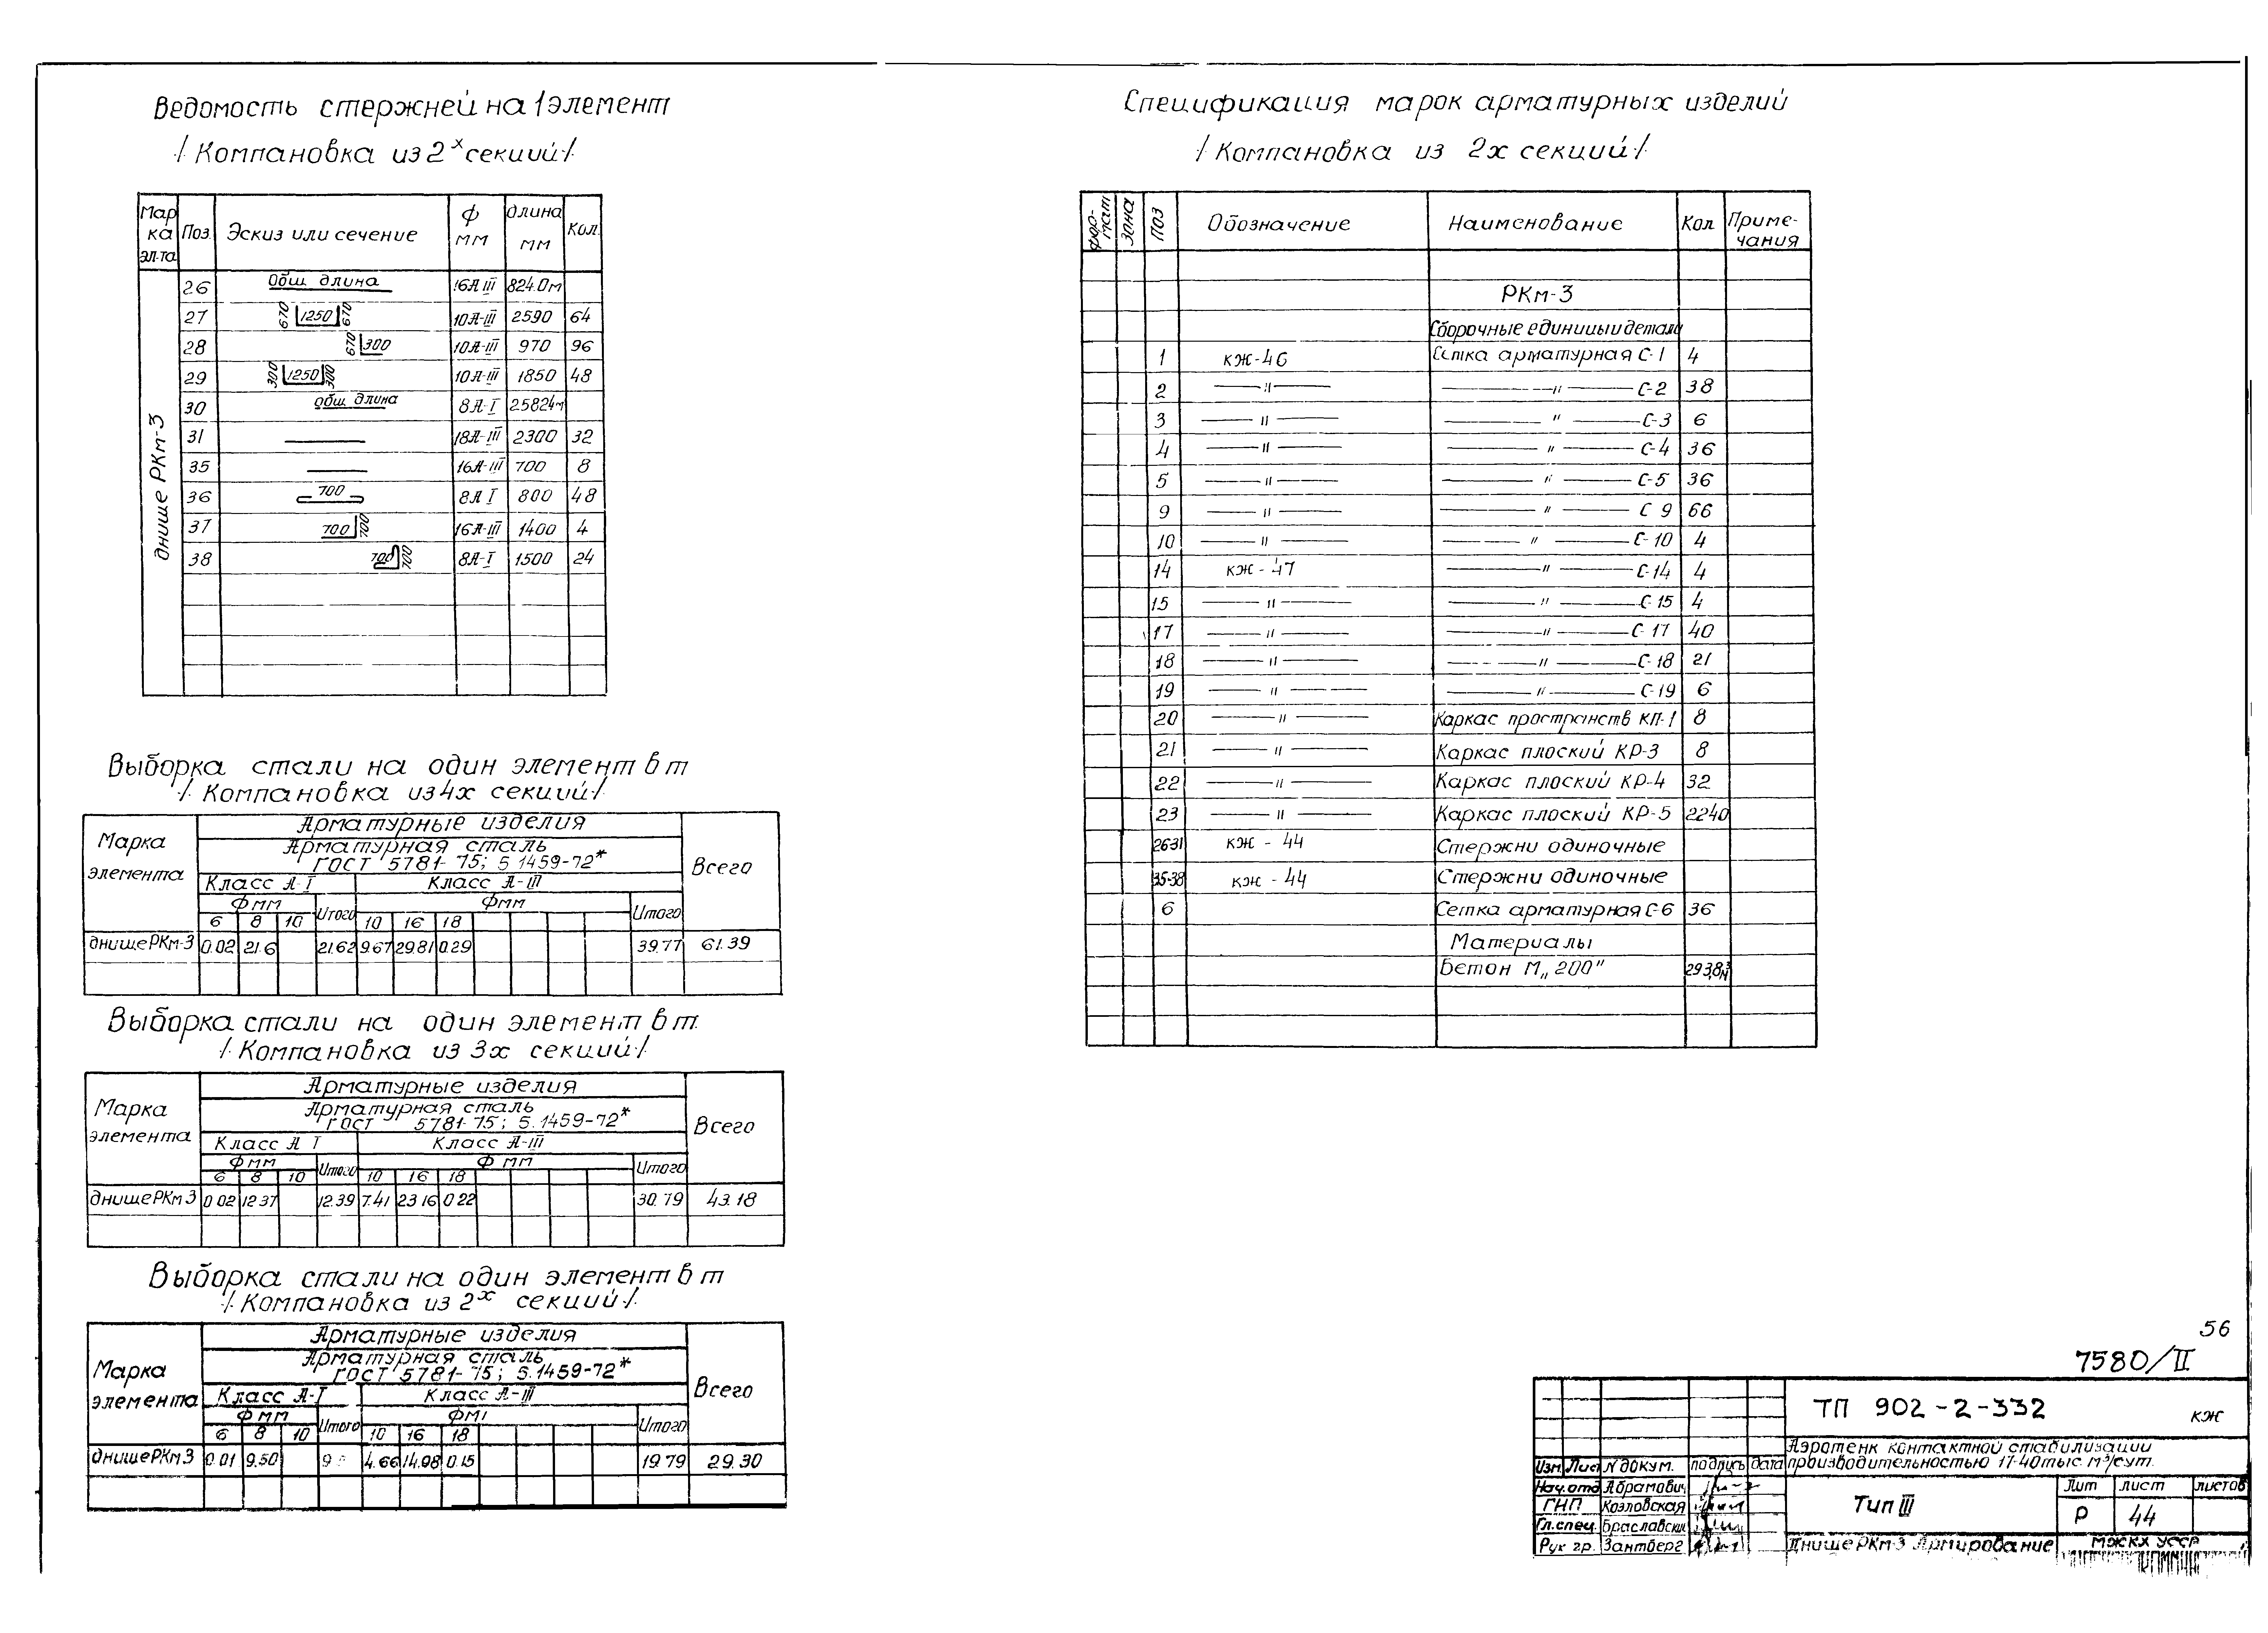 Ведомость стержней на 1 элемент
/ Компановка из 2х секций /
Мар ка эл-та Поз. Эскиз или сечение ф мм длина мм Кол.
днище РКм-3
26 Общ. длина 16А III 824.0м
27 670 1250 670 10А-III 2590 64
28 670 300 10А-III 970 96
29 300 1250 300 10А-III 1850 48
30 общ. длина 8А-I 25824м
31 18А-III 2300 32
35 16А-III 700 8
36 700 8А I 800 48
37 700 700 16А-III 1400 4
38 700 700 8А-I 1500 24
Выборка стали на один элемент в т
/ Компановка из 4х секций /
Марка элемента Арматурные изделия Всего
Арматурная сталь
ГОСТ 5781-75; 5.1459-72*
Класс А-I Класс А-III
Фмм Итого Фмм Итого
6 8 10 10 16 18
днище РКм-3 0.02 21.6 21.62 9.67 29.81 0.29 39.77 61.39
Выборка стали на один элемент в т.
/ Компановка из 3х секций /
Марка элемента Арматурные изделия Всего
Арматурная сталь
ГОСТ 5781-75; 5.1459-72*
Класс А I Класс А-III
Ф мм Итого Ф мм Итого
6 8 10 10 16 18
днище РКм 3 0.02 12.37 12.39 7.41 23.16 0.22 30.79 43.18
Выборка стали на один элемент в т
/ Компановка из 2х секций /
Марка элемента Арматурные изделия Всего
Арматурная сталь
ГОСТ 5781-75; 5.1459-72*
Класс А-I Класс А-III
Ф мм Итого Итого
6 8 10 10 16 18
днище РКм 3 0.01 9.50 4.66 14.98 0.15 19.79 29.30
Спецификация марок арматурных изделий
/ Компановка из 2х секций /
фор-мат Зона Поз Обозначение Наименование Кол Приме-чания
РКм-3
Сборочные единицы и детали
1 КЖ-46 Сетка арматурная С-1 4
2 — " — — " — С-2 38
3 — " — — " — С-3 6
4 — " — — " — С-4 36
5 — " — — " — С-5 36
9 — " — — " — С 9 66
10 — " — — " — С-10 4
14 КЖ-47 — " — С-14 4
15 — " — — " — С-15 4
17 — " — — " — С-17 40
18 — " — — " — С-18 21
19 — " — — " — С-19 6
20 — " — Каркас пространств КП-1 8
21 — " — Каркас плоский КР-3 8
22 — " — Каркас плоский КР-4 32
23 — " — Каркас плоский КР-5 2240
26-31 КЖ-44 Стержни одиночные
35-38 КЖ-44 Стержни одиночные
6 Сетка арматурная С-6 36
Материалы
Бетон М„200" 293,8м³
56
7580/II
ТП 902-2-332 КЖ
Аэротенк контактной стабилизации
производительностью 17-40тыс. м³/сут.
Изм. Лист N докум. подпись дата
Нач.отд Абрамович
ГНП Козловская
Гл.спец. Браславский
Рук гр. Зантберг
Тип III
Лит лист листов
Р 44
Днище РКм-3 Армирование
МЖКХ УССР